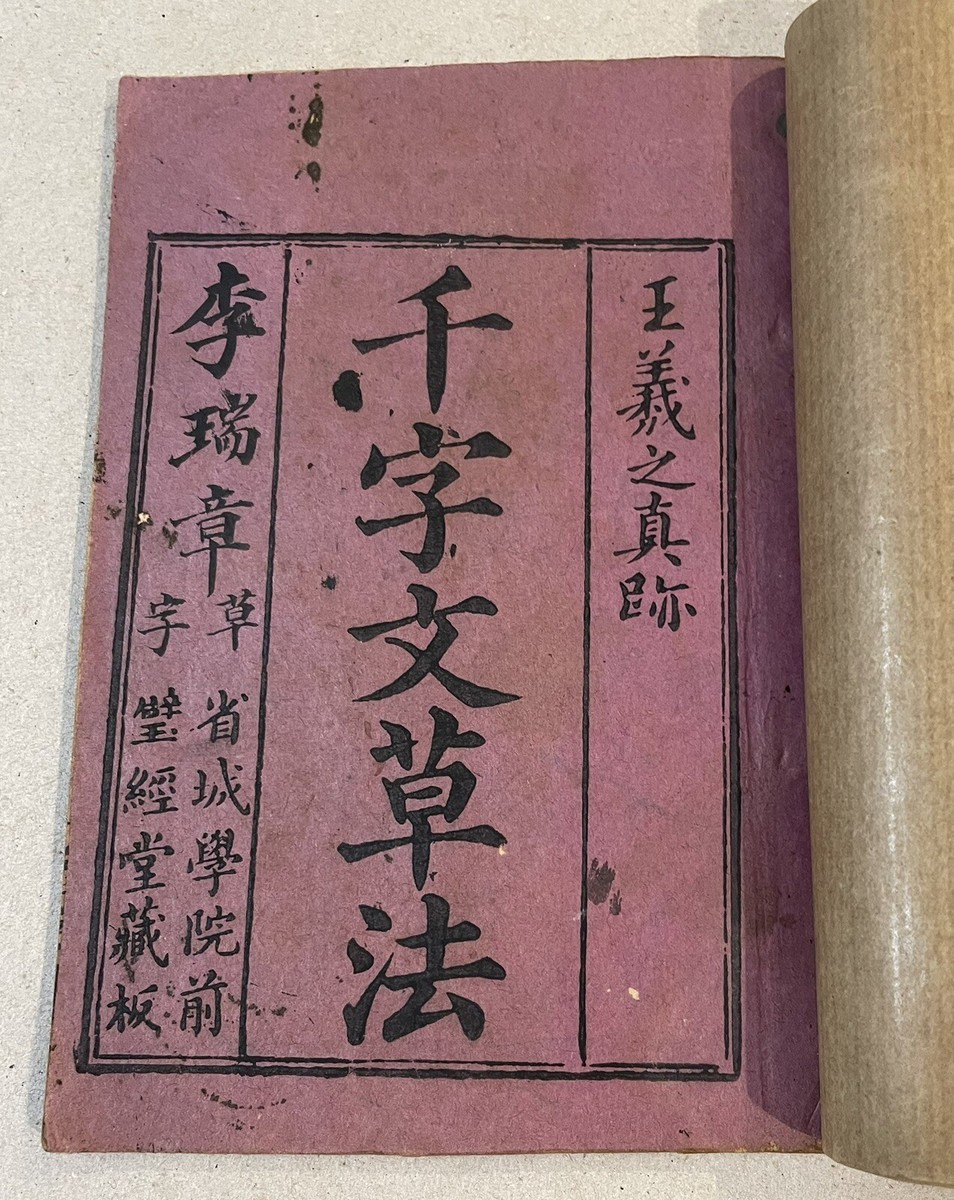 王羲之真跡
千字文草法
李瑞章草字
省城學院前
璧經堂藏板